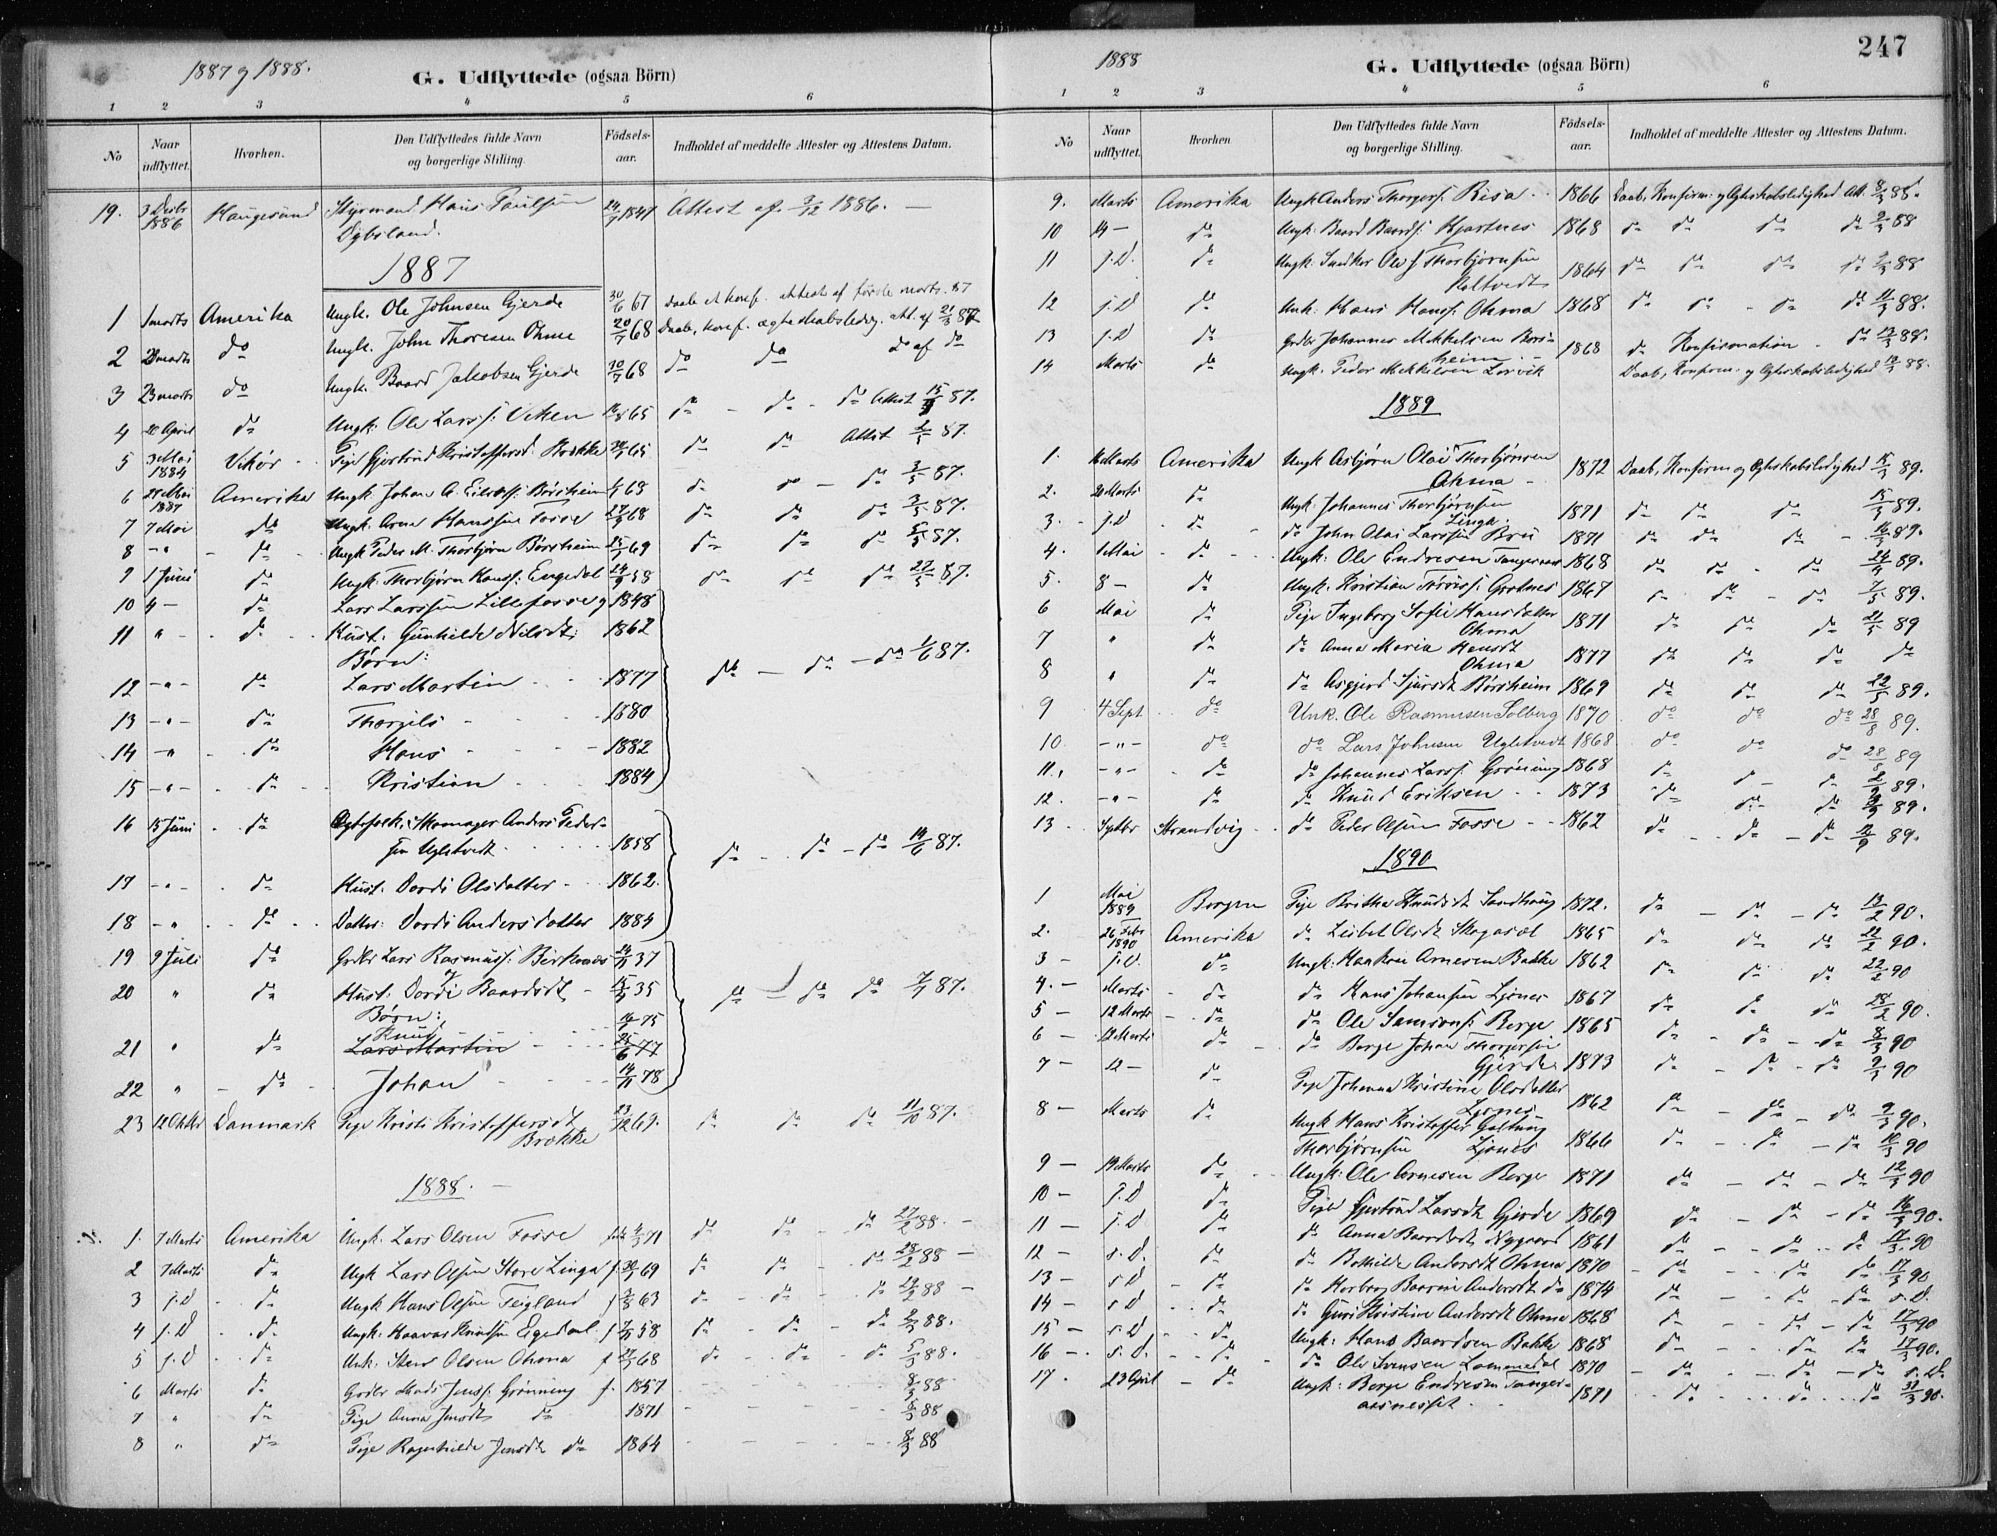 1887 g 1888.
G. Udflyttede (ogsaa Börn)
1 2 3 4 5 6
No
Naar udflyttet.
Hvorhen.
Den Udflyttedes fulde Navn og borgerlige Stilling.
Födsels-aar.
Indholdet af meddelte Attester og Attestens Datum.
19. 3 Decbr 1886 Haugesund Styrmand Hans Paulsen 1847 Attest af 3/12 1886. —
Dybsland.
1887
1 1 marts Amerika Ungk. Ole Johnsen Gjerde 30/6 67 Daabs et konf. attest af første marts. 87
2 28 marts do Ungk. John Thoresen Ohme 20/7 68 Daab, konf. ægteskabsledig. att. af 21/3 87
3 23 marts do Ungk. Baard Jakobsen Gjerde 10/7 68 do do do af do
4 20 April do Ungk: Ole Larss: Viken 65 do - do - do Attest 87.
5 3 Mai 1884 Vikör Pige Gjertrud Kristoffersd. Brække 65 do do Attest 2/5 87.
6 28 Mai 1887 Amerika Ungk. Johan A. Börsheim 68 do do — do 3/5 87.
7 7 Mai do Ungk. Arne Hanssen Fosse 68 do do do 3/5 87.
8 -"- do Ungk Peder M. Thorbjørn Börsheim 69 do do do 5/5 87.
9 1 Juni do Ungk: Thorbjørn Hanss: Engedal 58 do do do 22/5 87.
10 4 - do Lars Larssen Lillefosse og 1848
11 " - do Kust. Gunhilde Nilsdt. 1862
Børn:
12 -"- do Lars Martin 1877 do — do — do 1/6 87.
13 -"- do Thorgils 1880
14 -" do Hans 1882
15 -"- do Kristian 1884
16 15 Juni do Ægtefolk: Skomager Anders Peder-
sen Ugletvedt 1858 do - do - do 14/6 87.
17 -"- do Kust. Dordi Olsdatter 1862.
18 -" do Datter: Dordi Andersdatter 1884
19 9 Juli do Grdbr Lars Rasmuss: Birkenæs 37
og
20 " do Kust: Dordi Baardsdt 35 do — do do 7/7 87.
Børn: 75
Knud
21 " do Lars Martin 77
22 " do Johan 78
23 12 Oktbr Danmark Pige Kristi Kristoffersdt 69. do do do 11/10 87.
Brække
1888.
1. 7 Marts Amerika Ungk. Lars Olsen Fosse 71 do do do 27/2 88.
2 7 Marts do Ungk Lars Olsen Store Linga f. 69 do do do 28/2 88
3 s.D. do Ungk Hans Olsen Teigland f 63 do do do 29/2 88
4 s.D do Ungk. Haavar Knudsen Egedal f 58 do do do 2/3 88.
5 s.D do Unk: Stens Olsen Ohma f 68 do do do 5/3 88.
6 Marts do Grdbr Mads Jenss: Grønning f. 1857 8/3 88
7 " do Pige Anna Jensdt do 1871 8/3 88
8 " do Pige Ragnhilde Jensdt do 1864 8/3 88
1888
G. Udflyttede (ogsaa Börn)
247
1 2 3 4 5 6
No
Naar udflyttet.
Hvorhen
Den Udflyttedes fulde Navn og borgerlige Stilling.
Födsels-aar.
Indholdet af meddelte Attester og Attestens Datum.
9. Marts Amerika Ungk Anders Thorgerss. Risa 1866 Daab, Konfirm. og Ægteskabsledighed Att. 8/3 88.
10 14 - do Ungk: Baard Baards: Hjartnes 1868 do do do do 9/3 88
11 s.D. do Ungk. Snedker Ole Thorbjørnsen
Roltvedt 1864 do do do do 9/3 88
12 s.D do Unk. Hans Hanss: Ohma 1868 do do - do do 11/3 88.
13 s.D do Grdbr Johannes Mikkelsen Börs-
heim 1868 do Konfirmation - do 13/3 88.
14 Marts do Ungk. Peder Mikkelsen Lorvik Daab, Konfirm. og Ægteskabsledighed 88.
1889
1. 16 Marts Amerika Ungk Asbjørn Olai Thorbjørnsen
Ohma 1872 Daab, Konfirm og Ægteskabsledighed 15/3 89.
2. 20 Marts do Ungk. Johannes Thorbjørnsen
Linga 1871 do do do 15/3 89.
3. s.D do do John Olai Larssen Bru 1871 do do do 16/3 89.
4. 1 Mai do Ungk: Ole Endresen Tangeraas 1868 do do do 24/4 89.
5. 8 - do Ungk. Kristian Grotnes 1867 do do do 7/5 89.
6 Mai do Pige Ingeborg Sofie Hansdatter
Ohma 1871 do do do 21/5 89
7 " do do Anna Maria Hansdt
Ohma 1877 do do do do
8 " do do Asgjerd Sjursdt Börsheim 1869 do do do 22/5 89.
9 4 Sept do Unk. Ole Rasmussen Solberg 1870 do do do 28/8 89.
10. -"- do do Lars Johnsen Ugletvedt 1868 do do do 28/8 89
11. -"- do do Johannes Larss: Grøning 1868 do do do 89.
12. -"- do do Knud Eriksen 1873 do do do 89.
13. Septbr Strandvig do Peder Olsen Fosse 1862 do - do - do 89.
1890
1 Mai 1889 Bergen Pige Britha Knudsdt Sandhaug 1872. do - do - do 13/2 90.
2. 26 Febr 1890 Amerika do Leibet Olsdt Skogasel 1865 do do do 22/2 90.
3 - s.D. do Ungk: Haakon Arnesen Bakke 1862 do do do 22/2 90
4. - Marts do do Hans Johansen Ljones 1867 do do do 28/2 90.
5 - 12 Marts do do Ole Samsons: Berge 1865 do - do - do 8/3 90
6 - 12 Marts do do Berge Johan Thorgersen
Gjerde 1873 do - do - do 9/3 90
7 - 12 - do Pige Johanna Kristine Olsdatter
Ljones 1862 do - do - do 9/3 90.
8 - Marts do Ungk Hans Kristoffer Galtung
Thorbjørnsen Ljones 1866 do - do - do 10/3 90
9 - 19 Marts do Ungk: Ole Arnesen Berge 1871 do - do - do 12/3 90
10 - s.D do Pige Gjertrud Larsdt Gjerde 1869 do - do - do 16/3 90.
11 - s.D do do Anna Baardsdt Nygaard 1861 do - do - do 17/3 90
12 - s.D. do do Bothilde Andersdt Ohma 1870 do - do do 17/3 90
13 - s.D do do Herborg Baarine Andersdt do 1874 do - do - do s.D.
14 - s.D do do Guri Kristine Andersdt Ohma 1868 do - do - do 17/3 90
15 - s.D do Ungk: Hans Baardsen Bakke 1868 do do do 17/3 90.
16 - s.D. do do Ole Svensen Lammedal 1870 do - do - do s.D.
17. 23 April do Ungk: Berge Endresen Tanger-
aasnesset 1871 do do do 31/3 90.